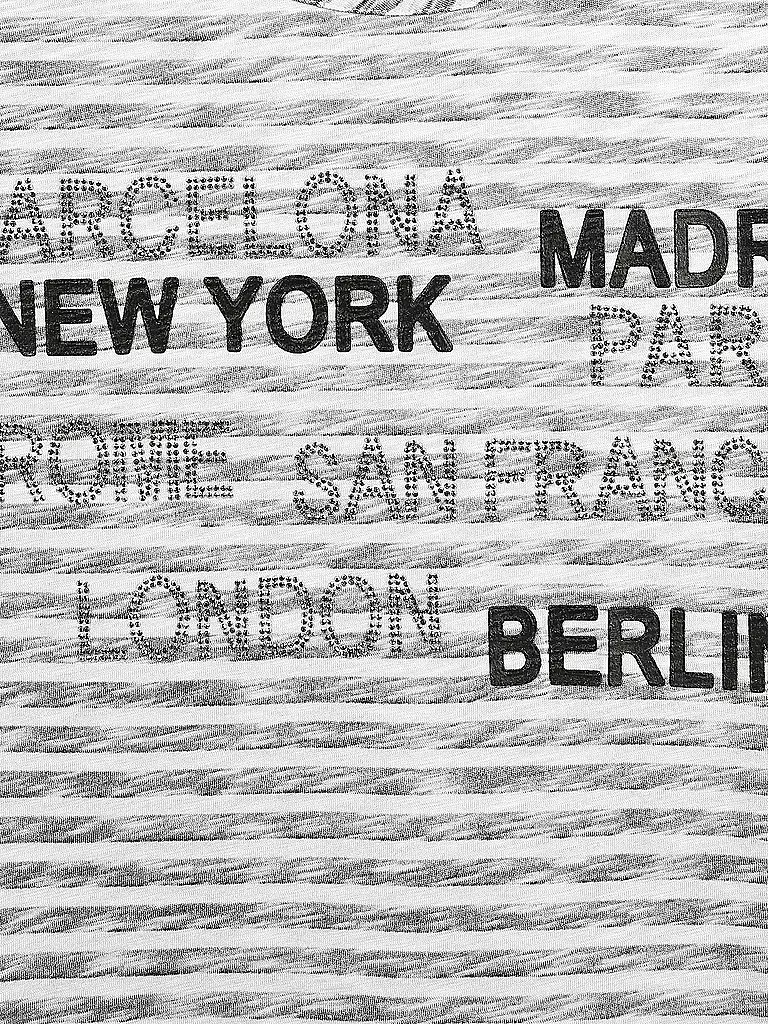 ARCELONA
MADR
NEW YORK
PAR
ROME SAN FRANC
LONDON
BERLIN